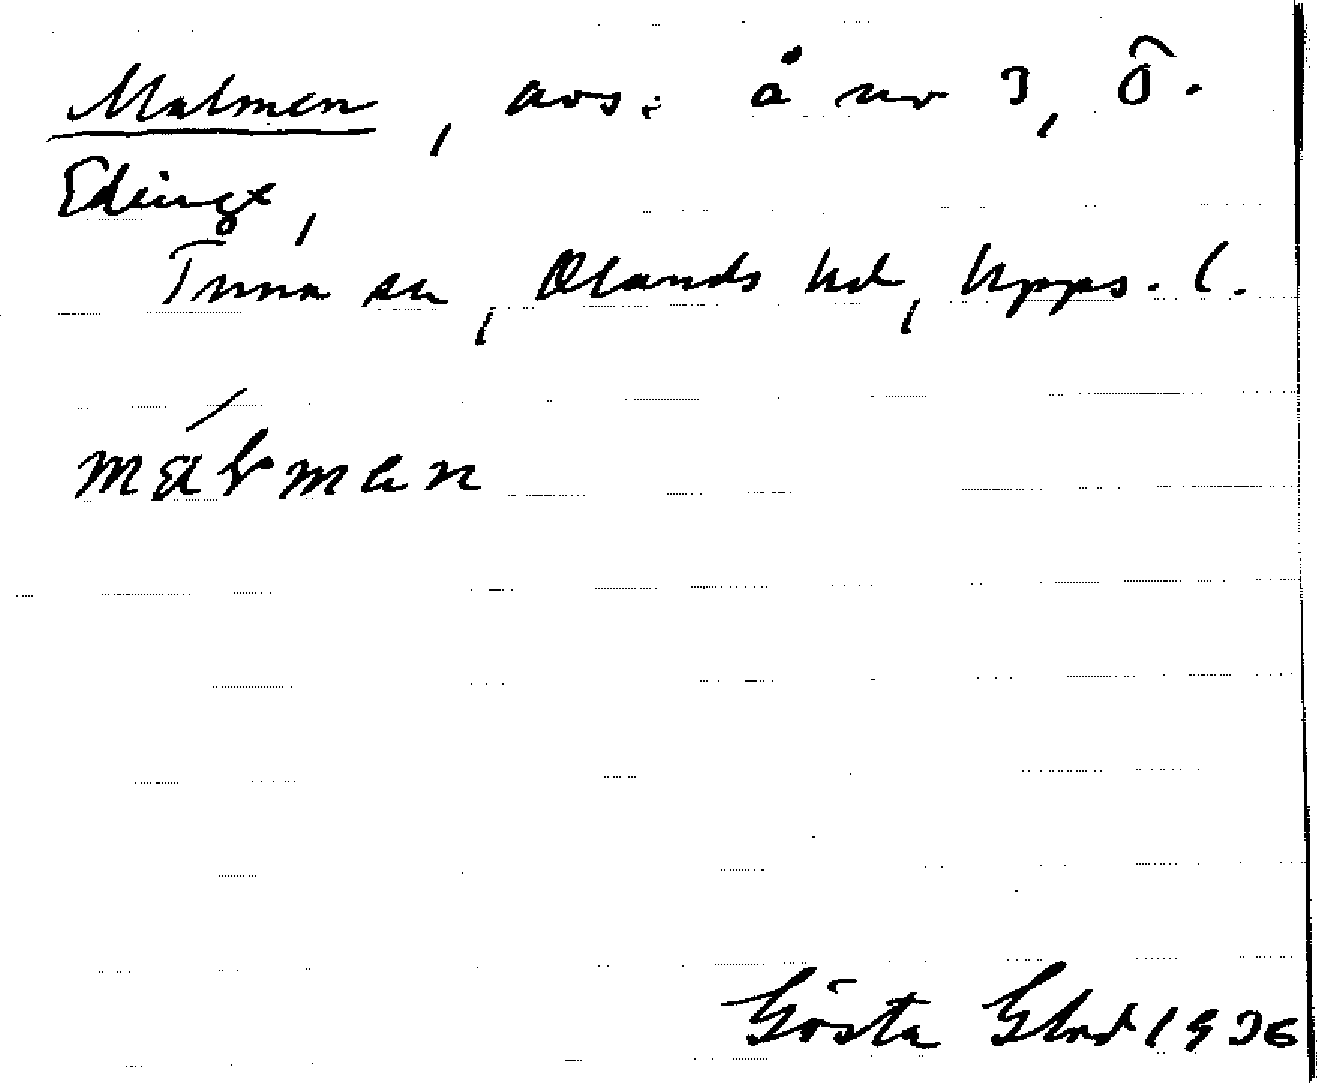 Malmen, avs. å nr 3, Ö.
Edinge,
Tuna sn, Olands hd, Upps. l.
málman
Gösta Glad 1936